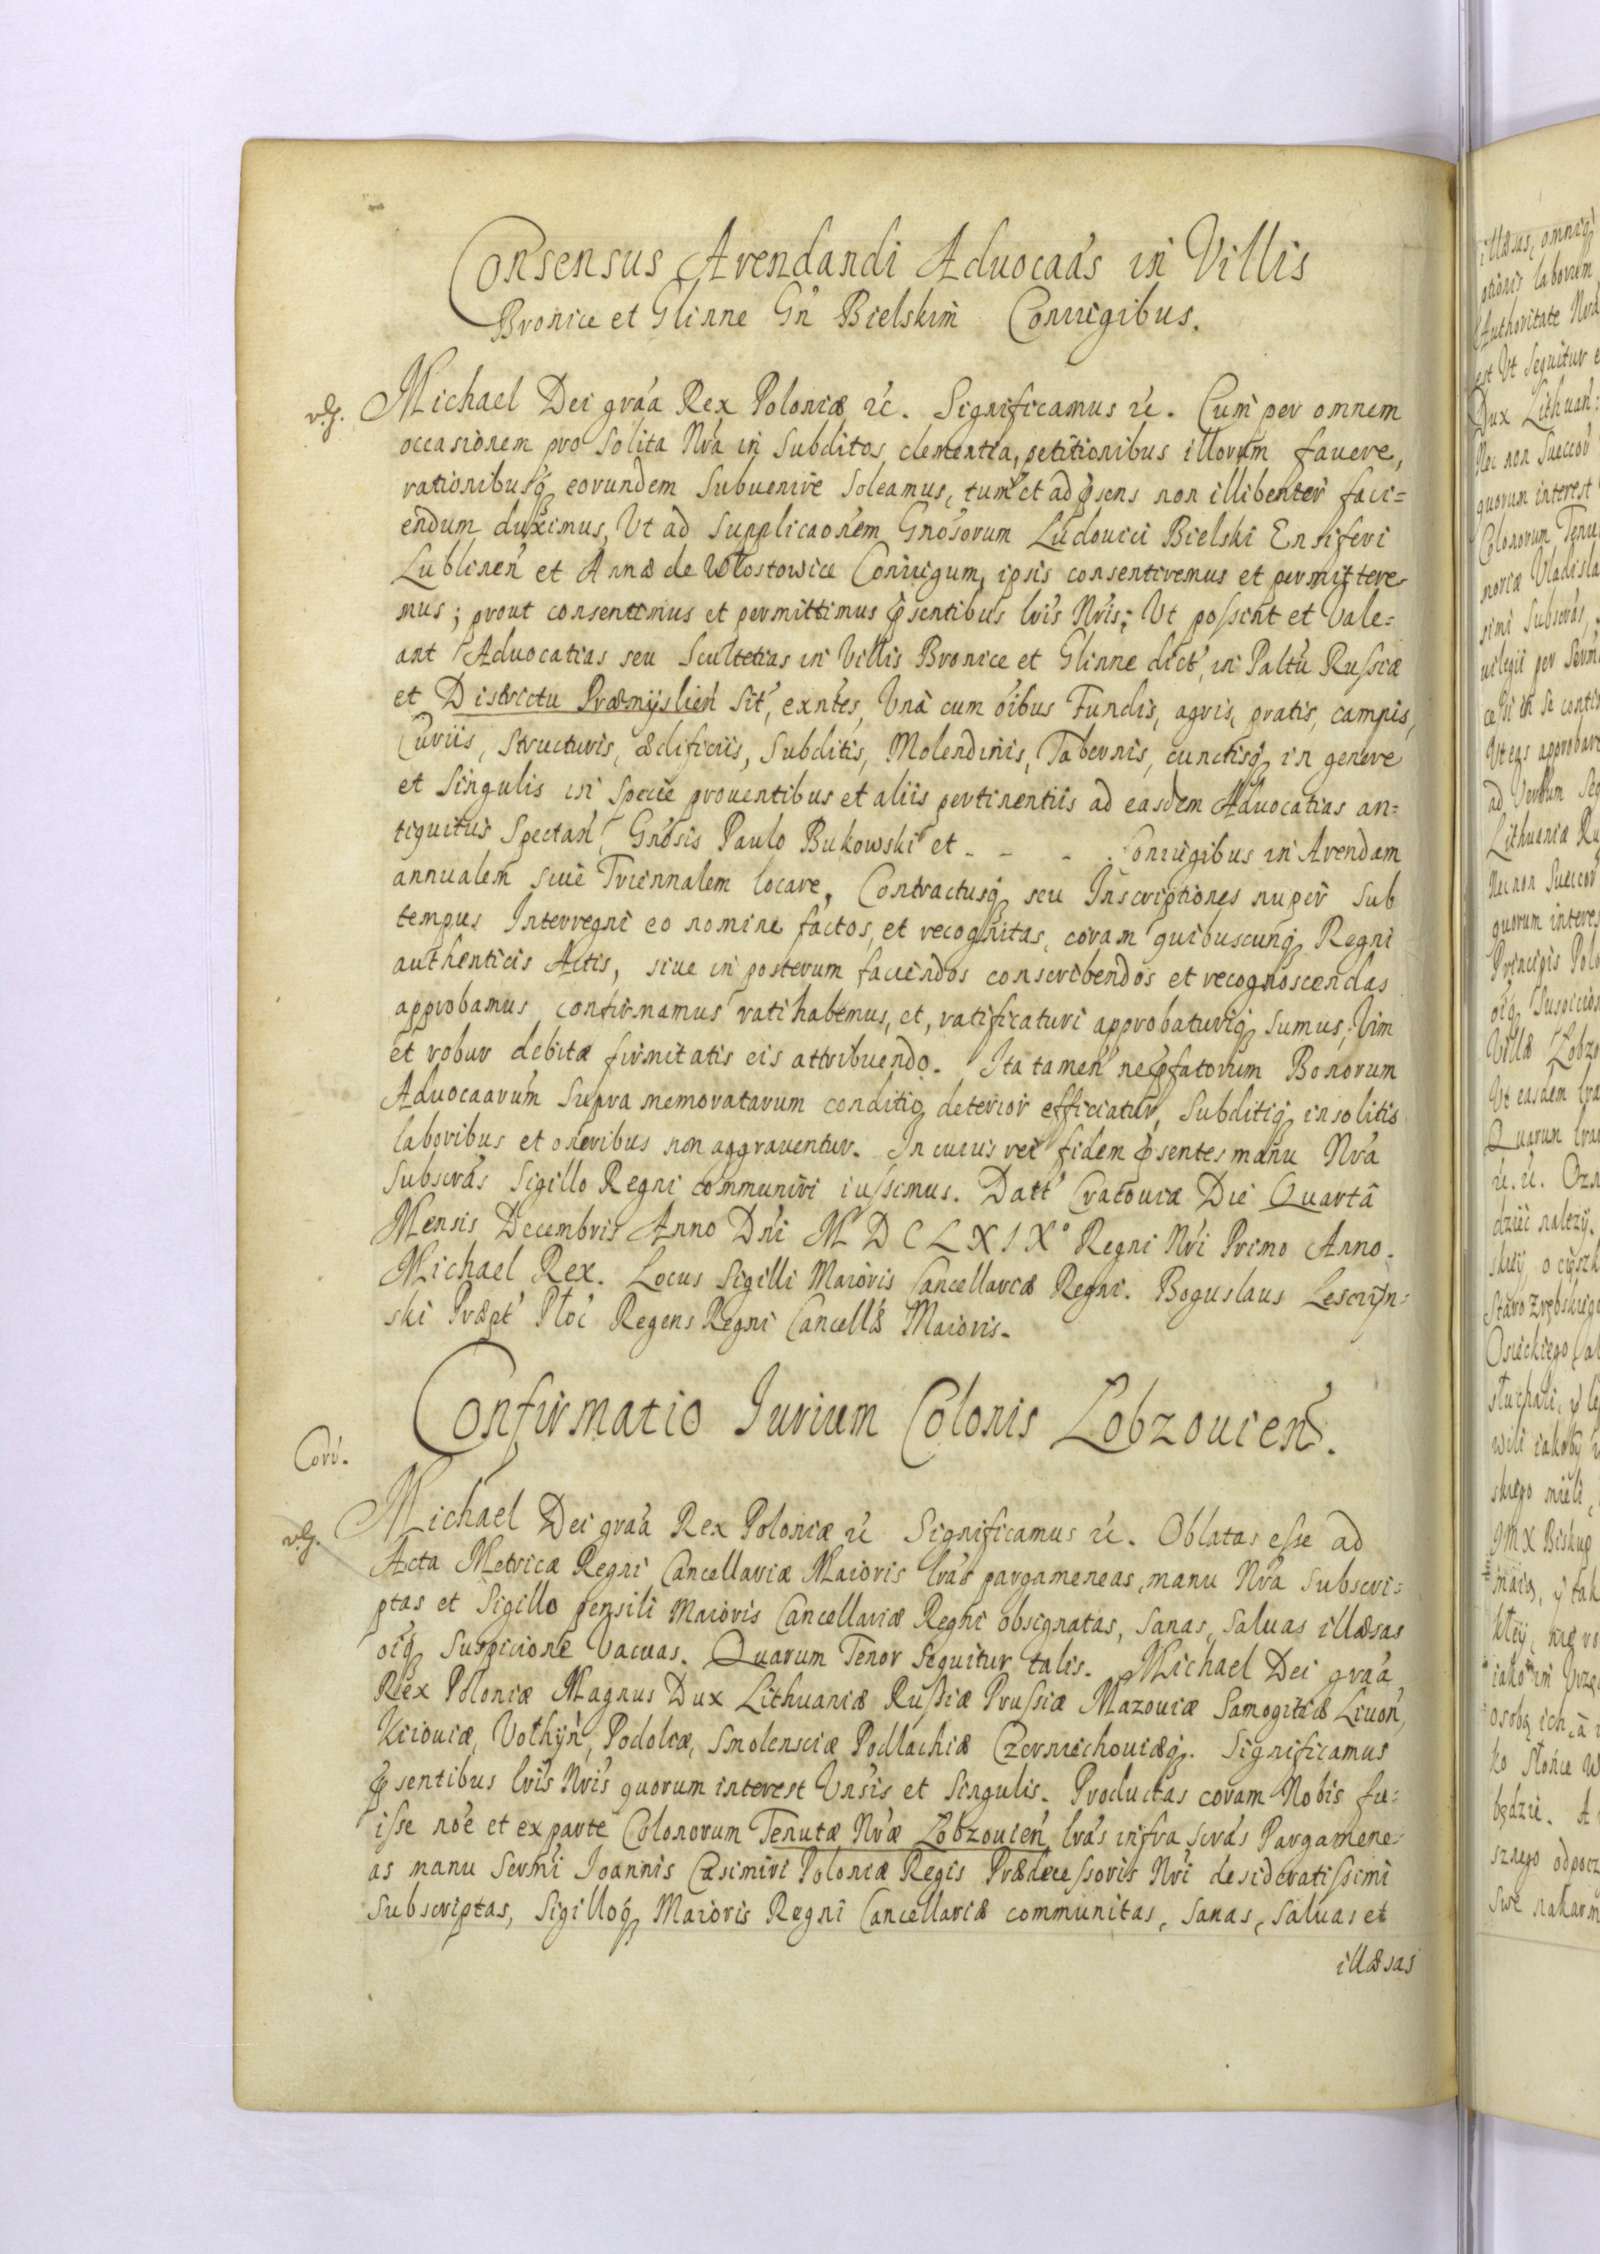 Consensus Arendandi Aduocaás in Villis
Bronice et Glinne Gń Bielskim Coniugibus.
Michael Dei gráa Rex Poloniæ ꝛc. Significamus ꝛc. Cum per omnem
occasionem pro solita Nrá in subditos clementia, petitionibus illorum fauere,
rationibusq; eorundem subuenire soleamus, tum et ad p̄sens non illibenter faci=
endum duximus, Vt ad supplicaónem Gnósorum Ludouici Bielski Ensiferi
Lublineń et Annæ de Włostowice Coniugum, ipsis consentiremus et permittere=
mus; prout consentimus et permittimus p̄sentibus lrís Nrís; Vt possint et Vale=
ant Aduocatias seu Scultetias in Villis Bronice et Glinne dict́, in Paltú Russiæ
et Districtu Præmysslień sit́, exńtes, Vná cum óibus Fundis, agris, pratis, campis,
Curiis, structuris, ædificiis, subditis, Molendinis, Tabernis, cunctisq; in genere
et singulis in specie prouentibus et aliis pertinentiis ad easdem Aduocatias an=
tiquitus Spectań, Gnósis Paulo Bukowski et - - - Coniugibus in Arendam
annualem siue Triennalem locare, Contractusq; seu Inscriptiones nuper sub
tempus Interregni eo nomine factos, et recognitas, coram quibuscunq; Regni
authenticis Actis, siue in posterum faciendos conscribendos et recognoscendas
approbamus confirmamus ratihabemus, et, ratificaturi approbaturiq; sumus, Vim
et robur debitæ firmitatis eis attribuendo. Ita tamen ne p̄fatorum Bonorum
Aduocaarúm supra memoratarum conditio deterior efficiatur, subditiq; insolitis
laboribus et oneribus non aggrauentur. In cuius rei fidem p̄sentes manu Nrá
subscrás Sigillo Regni communiri iussimus. Datt́ Cracouiæ Die Quartâ
Mensis Decembris Anno Dńi M D C L X I X° Regni Nrí Primo Anno.
Michael Rex. Locus Sigilli Maioris Cancellariæ Regni. Boguslaus Lescżyn=
ski Præpt́ Płoć Regens Regni Cancellæ Maioris.
Confirmatio Jurium Colonis Lobzouień.
Michael Dei gráa Rex Poloniæ ꝛc Significamus ꝛc. Oblatas esse ad
Acta Metricæ Regni Cancellariæ Maioris lrás pargameneas, manu Nrá subscri=
ptas et Sigillo pensili Maioris Cancellariæ Regni obsignatas, sanas, saluas illæsas
oíq; suspicione vacuas. Quarum Tenor sequitur talis. Michael Dei gráa
Rex Poloniæ Magnus Dux Lithuaniæ Russiæ Prussiæ Mazouiæ Samogitiæ Liuoń,
Kiiouiæ, Vołhyń, Podoliæ, Smolensciæ Podlachiæ Czerniechouiæq;. Significamus
p̄sentibus lrís Nrís quorum interest Vnśis et singulis. Productas coram Nobis fu=
isse nóe et ex parte Colonorum Tenutæ Nræ Lobzouień lrás infra scrás Pargamene=
as manu Sermí Joannis Casimiri Poloniæ Regis Prædecessoris Nrí desideratissimi
subscriptas, Sigilloq; Maioris Regni Cancellariæ communitas, sanas, saluas et
illæsas